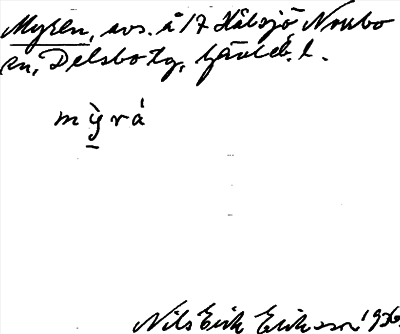 Myren, avs. å 17 Hålsjö, Norrbo
sn, Delsbo tg, Gävleb. l.
mỳrá
Nils Erik Eriksson 1936